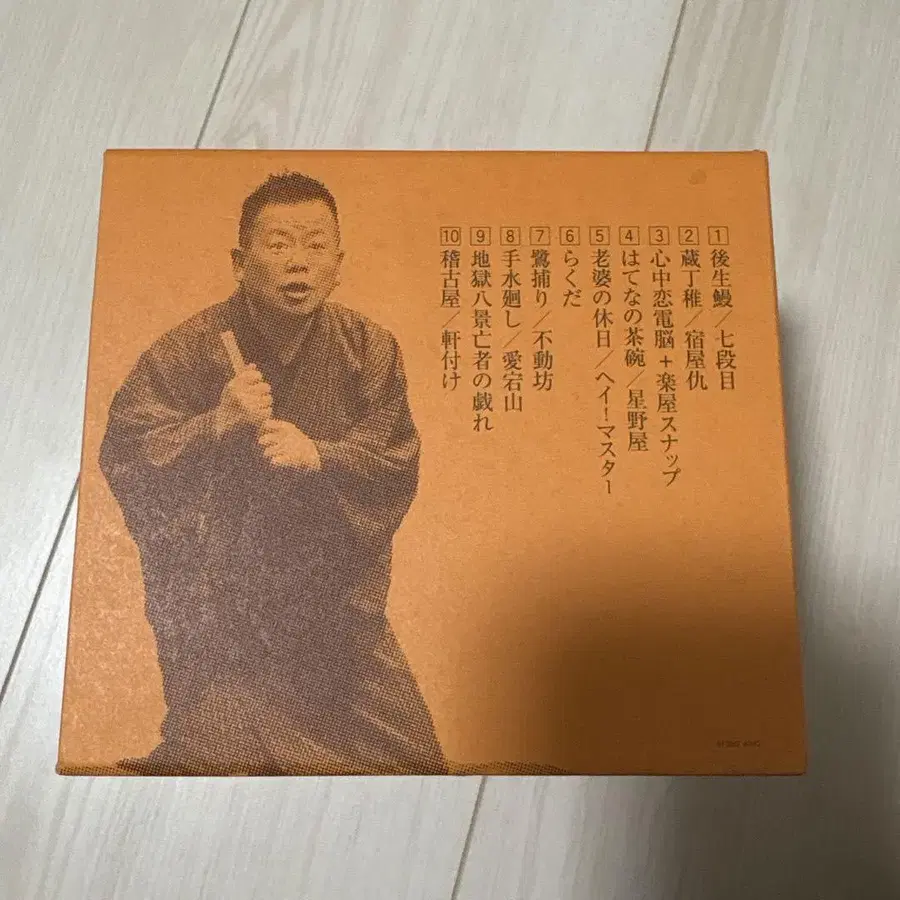 1 後生鰻／七段目
2 蔵丁稚／宿屋仇
3 心中恋電脳＋楽屋スナップ
4 はてなの茶碗／星野屋
5 老婆の休日／ヘイ！マスター
6 らくだ
7 鷺捕り／不動坊
8 手水廻し／愛宕山
9 地獄八景亡者の戯れ
10 稽古屋／軒付け